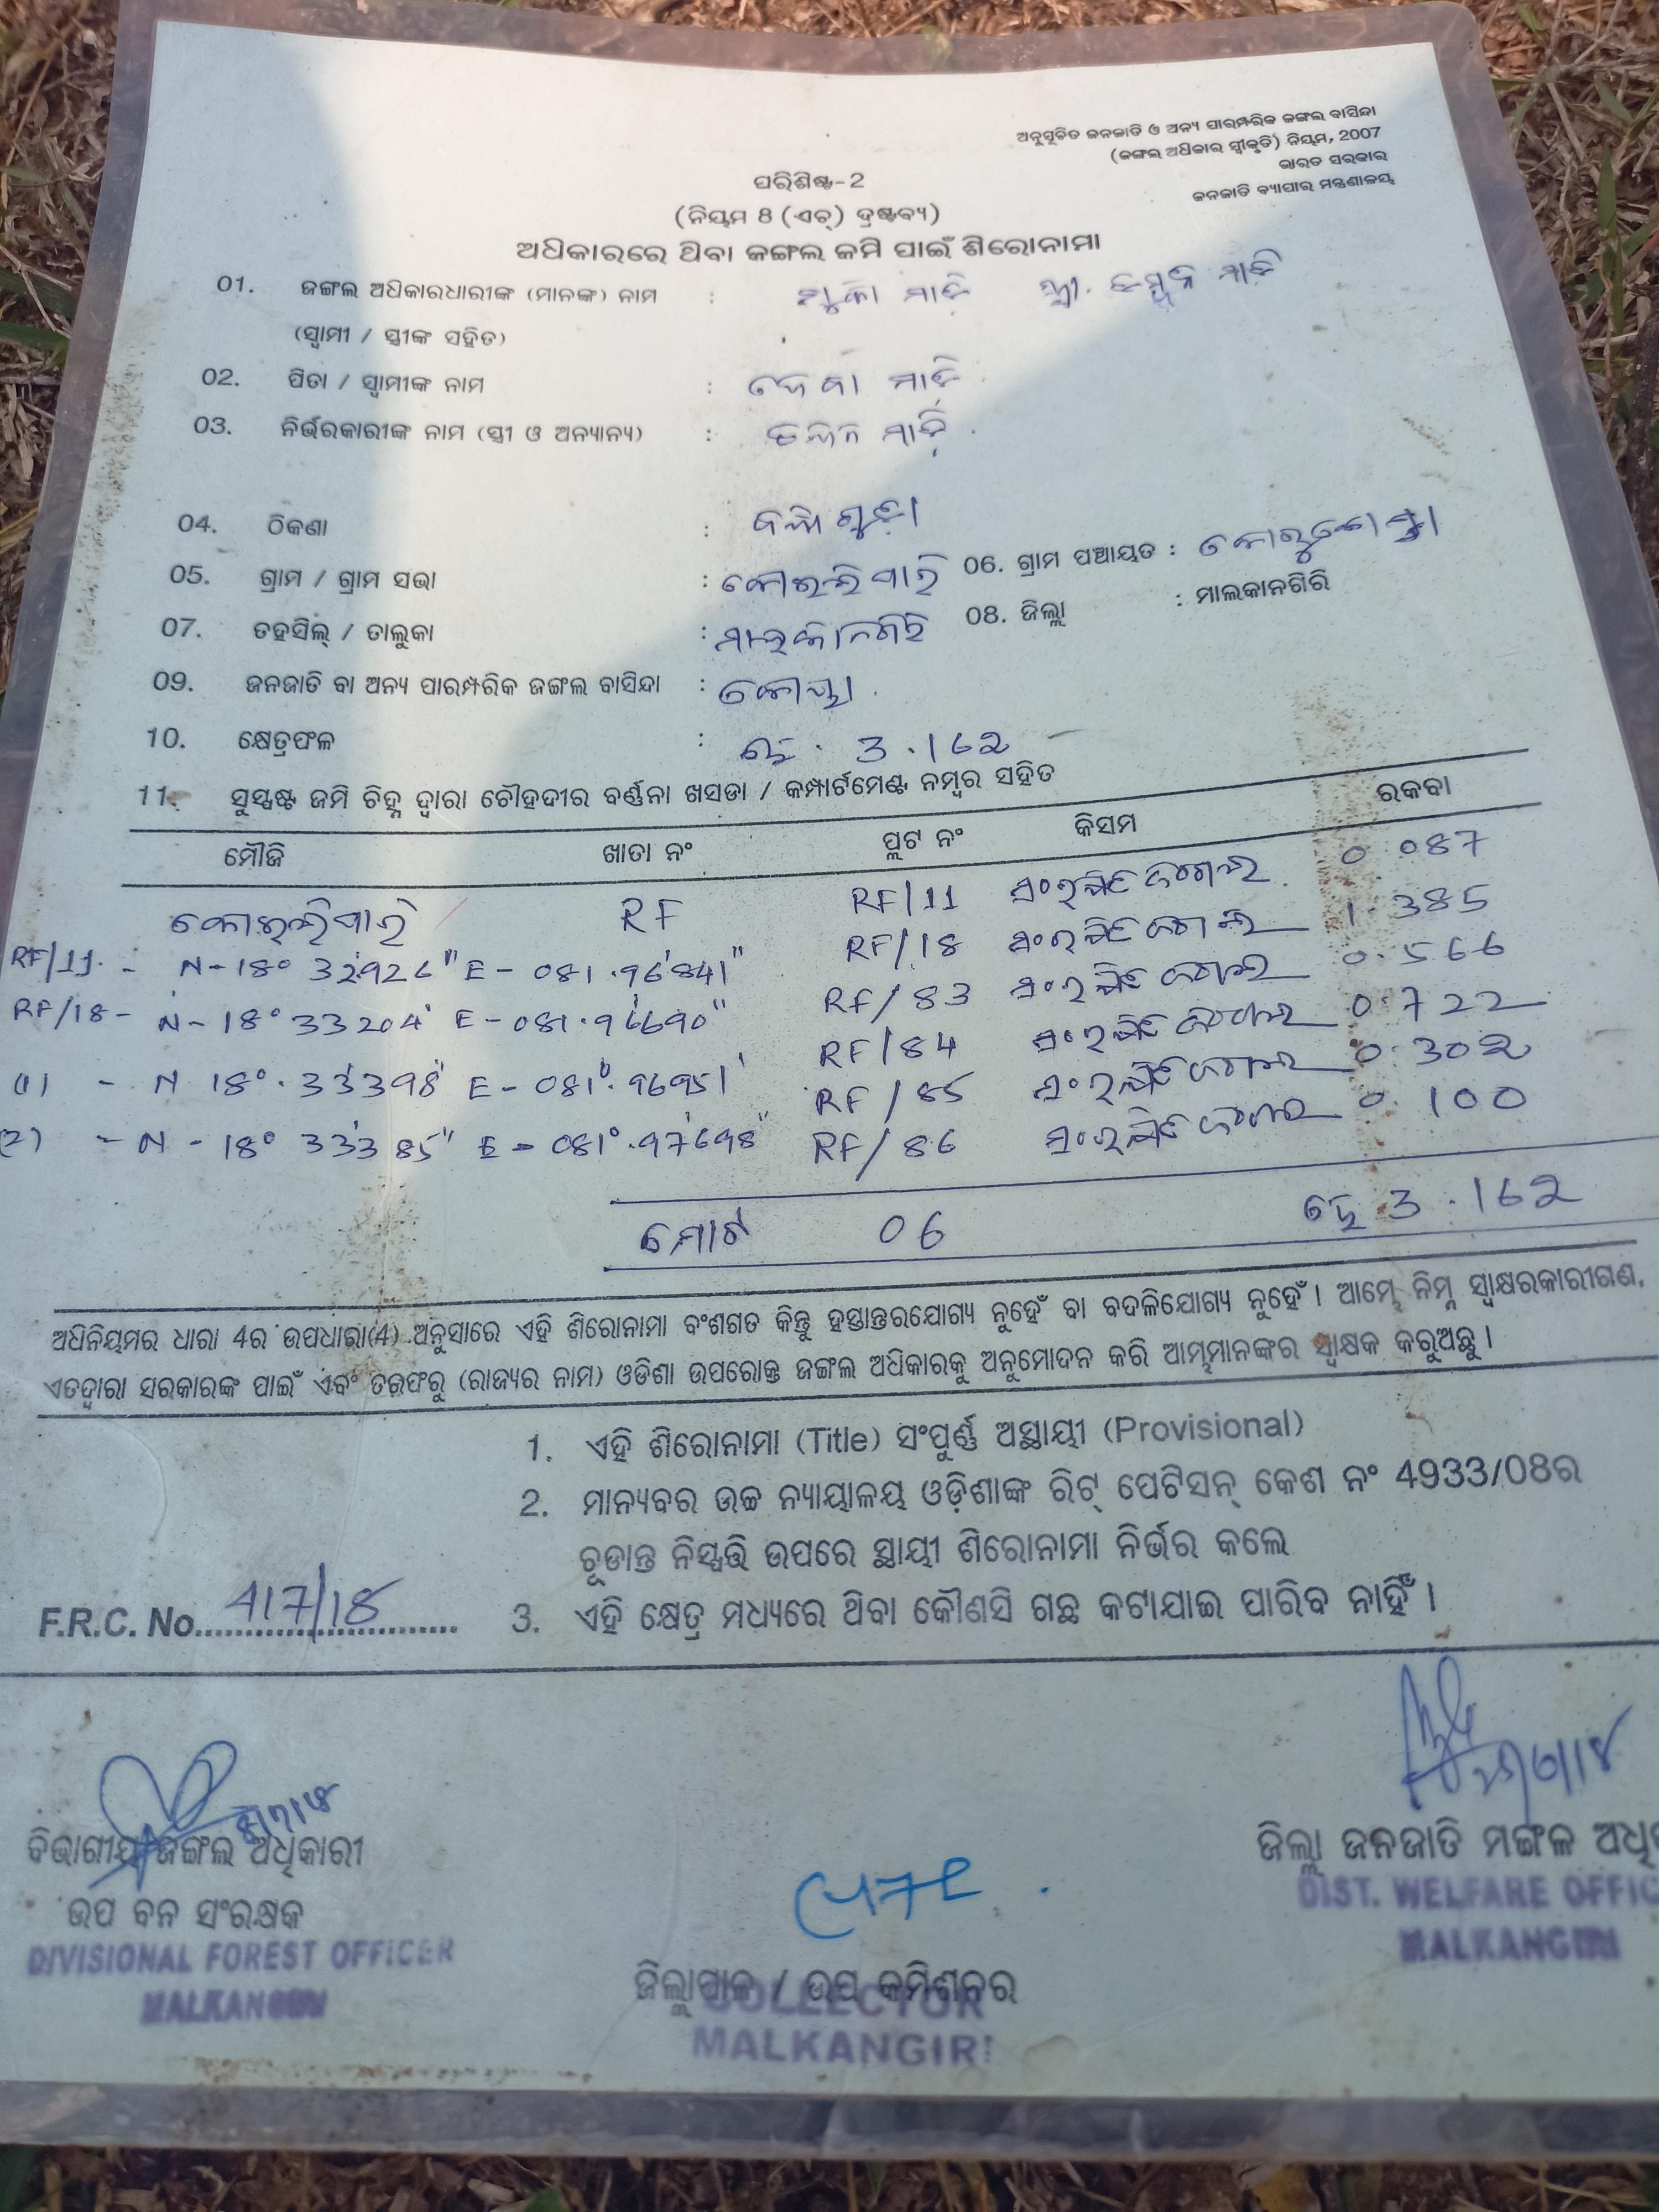 ଅନୁସୂଚିତ ଜନଜାତି ଓ ଅନ୍ୟ ପାରମ୍ପରିକ ଜଙ୍ଗଲ ବାସିନ୍ଦା
(ଜଙ୍ଗଲ ଅଧିକାର ସ୍ୱୀକୃତି) ନିୟମ, 2007
ଭାରତ ସରକାର
ଜନଜାତି ବ୍ୟାପାର ମନ୍ତ୍ରଣାଳୟ
ପରିଶିଷ୍ଟ-2
(ନିୟମ 8 (ଏଚ୍) ଦ୍ରଷ୍ଟବ୍ୟ)
ଅଧିକାରରେ ଥିବା ଜଙ୍ଗଲ ଜମି ପାଇଁ ଶିରୋନାମା
01. ଜଙ୍ଗଲ ଅଧିକାରଧାରୀଙ୍କ (ମାନଙ୍କ) ନାମ :
(ସ୍ୱାମୀ / ସ୍ତ୍ରୀଙ୍କ ସହିତ)
02. ପିତା / ସ୍ୱାମୀଙ୍କ ନାମ :
03. ନିର୍ଭରକାରୀଙ୍କ ନାମ (ସ୍ତ୍ରୀ ଓ ଅନ୍ୟାନ୍ୟ) :
04. ଠିକଣା :
05. ଗ୍ରାମ / ଗ୍ରାମ ସଭା : 06. ଗ୍ରାମ ପଞ୍ଚାୟତ :
07. ତହସିଲ୍ / ତାଲୁକା : ମାଲକାନଗିରି 08. ଜିଲ୍ଲା : ମାଲକାନଗିରି
09. ଜନଜାତି ବା ଅନ୍ୟ ପାରମ୍ପରିକ ଜଙ୍ଗଲ ବାସିନ୍ଦା : କୋୟା.
10. କ୍ଷେତ୍ରଫଳ : ହେ. 3.162
11. ସୁସ୍ପଷ୍ଟ ଜମି ଚିହ୍ନ ଦ୍ୱାରା ଚୌହଦୀର ବର୍ଣ୍ଣନା ଖସଡା / କମ୍ପାର୍ଟମେଣ୍ଟ ନମ୍ବର ସହିତ
ମୌଜି ଖାତା ନଂ ପ୍ଲଟ ନଂ କିସମ ରକବା
RF RF/11 ସଂରକ୍ଷିତ ଜଙ୍ଗଲ 0.087
RF/11. - N-18° 32926" E- 081.96841" RF/18 ସଂରକ୍ଷିତ ଜଙ୍ଗଲ 1.385
RF/18 - N- 18° 33204' E-081.96690" RF/83 ସଂରକ୍ଷିତ ଜଙ୍ଗଲ 0.566
(1) - N 18°. 33398' E- 081°.96951' RF/84 ସଂରକ୍ଷିତ ଜଙ୍ଗଲ 0.722
(2) - N - 18° 33385" E- 081°.97698" RF/85 ସଂରକ୍ଷିତ ଜଙ୍ଗଲ 0.302
RF/86 ସଂରକ୍ଷିତ ଜଙ୍ଗଲ 0.100
ମୋଟ 06 ହେ 3.162
ଅଧିନିୟମର ଧାରା 4ର ଉପଧାରା(4) ଅନୁସାରେ ଏହି ଶିରୋନାମା ବଂଶଗତ କିନ୍ତୁ ହସ୍ତାନ୍ତରଯୋଗ୍ୟ ନୁହେଁ ବା ବଦଳିଯୋଗ୍ୟ ନୁହେଁ । ଆମ୍ଭେ ନିମ୍ନ ସ୍ୱାକ୍ଷରକାରୀଗଣ,
ଏତଦ୍ୱାରା ସରକାରଙ୍କ ପାଇଁ ଏବଂ ତରଫରୁ (ରାଜ୍ୟର ନାମ) ଓଡିଶା ଉପରୋକ୍ତ ଜଙ୍ଗଲ ଅଧିକାରକୁ ଅନୁମୋଦନ କରି ଆମ୍ଭମାନଙ୍କର ସ୍ୱାକ୍ଷକ କରୁଅଛୁ ।
1. ଏହି ଶିରୋନାମା (Title) ସଂପୂର୍ଣ୍ଣ ଅସ୍ଥାୟୀ (Provisional)
2. ମାନ୍ୟବର ଉଚ୍ଚ ନ୍ୟାୟାଳୟ ଓଡ଼ିଶାଙ୍କ ରିଟ୍ ପେଟିସନ୍ କେଶ ନଂ 4933/08ର
ଚୂଡାନ୍ତ ନିସ୍ପତ୍ତି ଉପରେ ସ୍ଥାୟୀ ଶିରୋନାମା ନିର୍ଭର କଲେ
F.R.C. No. 417/18 3. ଏହି କ୍ଷେତ୍ର ମଧ୍ୟରେ ଥିବା କୌଣସି ଗଛ କଟାଯାଇ ପାରିବ ନାହିଁ ।
ବିଭାଗୀୟ ଜଙ୍ଗଲ ଅଧିକାରୀ
ଉପ ବନ ସଂରକ୍ଷକ
DIVISIONAL FOREST OFFICER
MALKANGIRI
ଜିଲ୍ଲାପାଳ / ଉପ କମିଶନର
COLLECTOR
MALKANGIRI
ଜିଲ୍ଲା ଜନଜାତି ମଙ୍ଗଳ
DIST. WELFARE OFFIC
MALKANGIRI